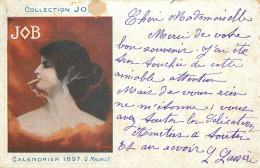 COLLECTION JO
JOB
CALENDRIER 1897 G. MAURICE
Chère Mademoiselle
Merci de votre
bon souvenir. J'ai été
très touchée de cette
aimable attention
Mais de vous rien
ne m'étonne; vous
avez toutes les délicatesses
à toutes
Et au revoir